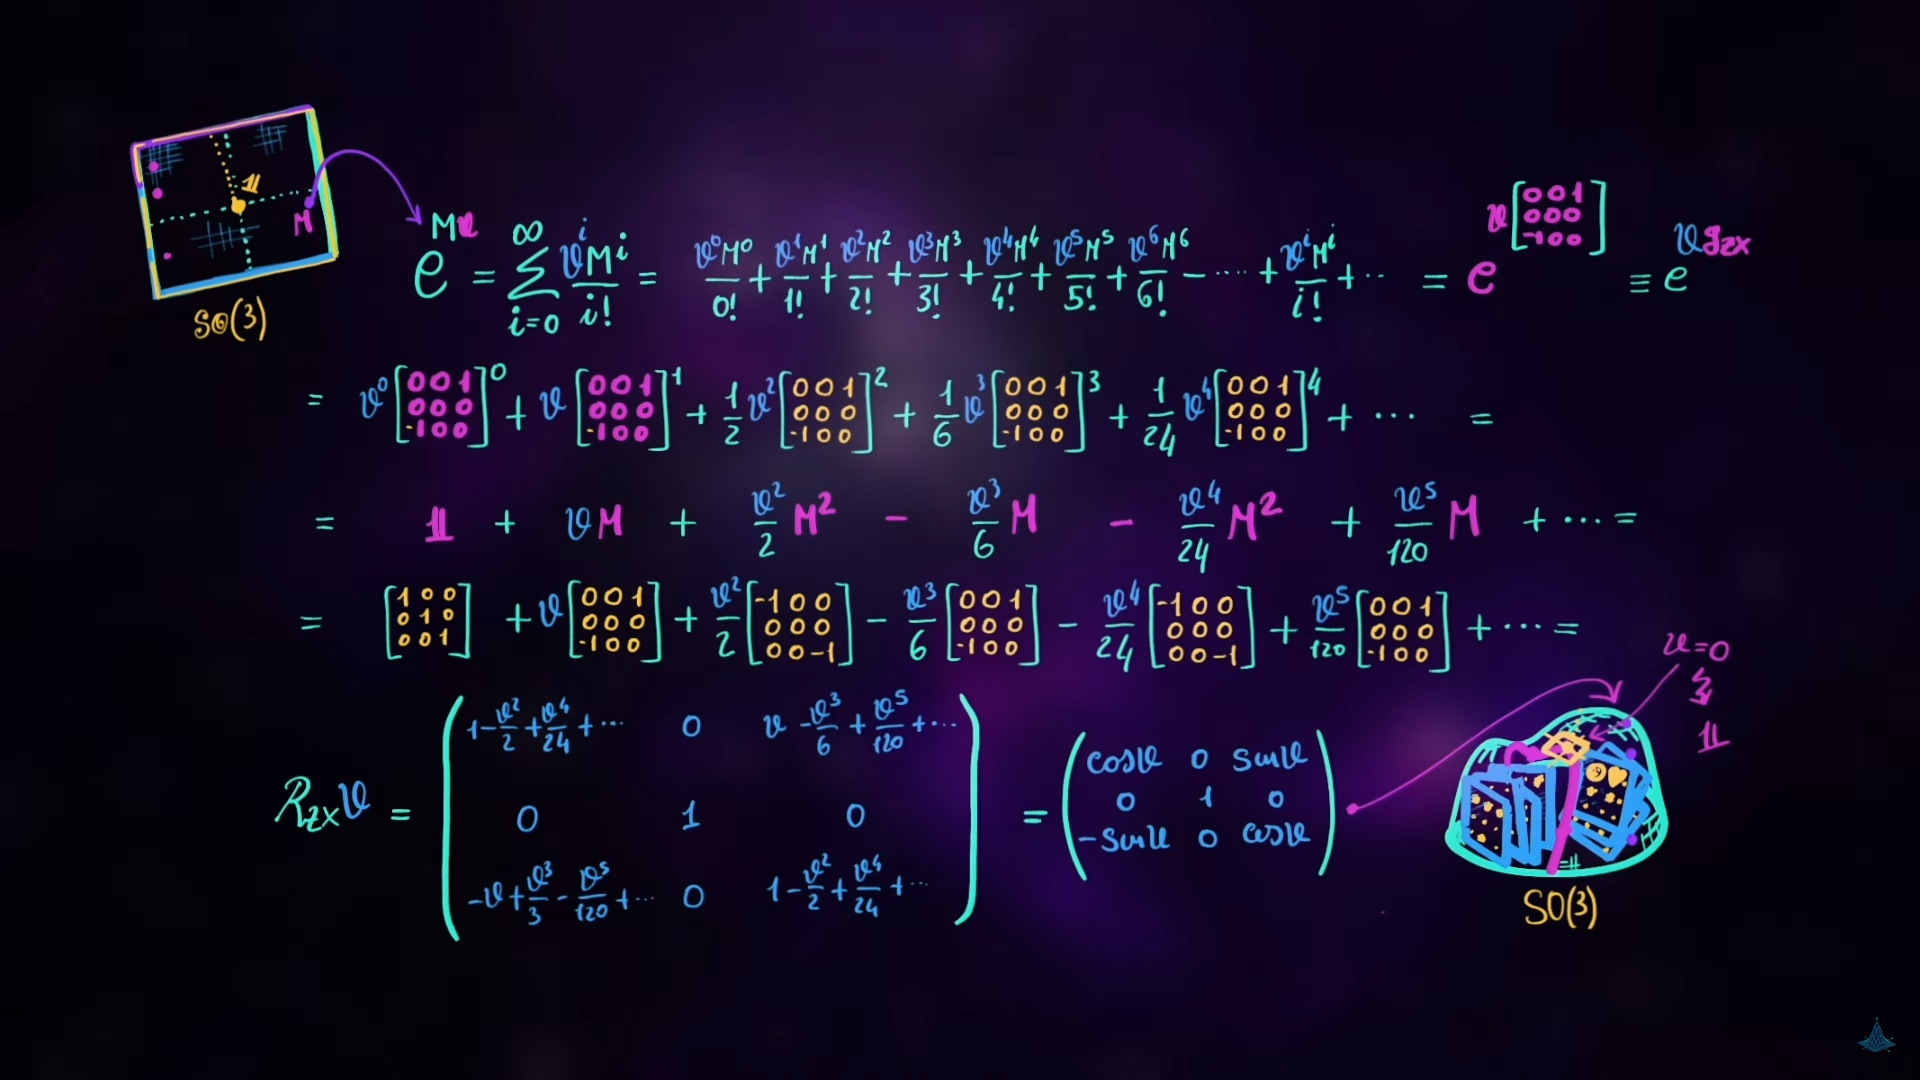 𝟙
M
so(3)
e^{Mϑ} = ∑_{i=0}^{∞} ϑ^i M^i / i! = ϑ^0M^0/0! + ϑ^1M^1/1! + ϑ^2M^2/2! + ϑ^3M^3/3! + ϑ^4M^4/4! + ϑ^5M^5/5! + ϑ^6M^6/6! - ···· + ϑ^iM^i/i! + ·· = e^{ϑ[0 0 1; 0 0 0; -1 0 0]} ≡ e^{ϑ g_{zx}}
= ϑ^0 [0 0 1; 0 0 0; -1 0 0]^0 + ϑ [0 0 1; 0 0 0; -1 0 0]^1 + 1/2 ϑ^2 [0 0 1; 0 0 0; -1 0 0]^2 + 1/6 ϑ^3 [0 0 1; 0 0 0; -1 0 0]^3 + 1/24 ϑ^4 [0 0 1; 0 0 0; -1 0 0]^4 + ··· =
= 𝟙 + ϑM + ϑ^2/2 M^2 - ϑ^3/6 M - ϑ^4/24 M^2 + ϑ^5/120 M + ··· =
= [1 0 0; 0 1 0; 0 0 1] + ϑ [0 0 1; 0 0 0; -1 0 0] + ϑ^2/2 [-1 0 0; 0 0 0; 0 0 -1] - ϑ^3/6 [0 0 1; 0 0 0; -1 0 0] - ϑ^4/24 [-1 0 0; 0 0 0; 0 0 -1] + ϑ^5/120 [0 0 1; 0 0 0; -1 0 0] + ··· =
R_{zx}ϑ = (1 - ϑ^2/2 + ϑ^4/24 + ··· 0 ϑ - ϑ^3/6 + ϑ^5/120 + ···; 0 1 0; -ϑ + ϑ^3/3 - ϑ^5/120 + ··· 0 1 - ϑ^2/2 + ϑ^4/24 + ···) = (cosϑ 0 sinϑ; 0 1 0; -sinϑ 0 cosϑ)
ϑ=0
𝟙
SO(3)